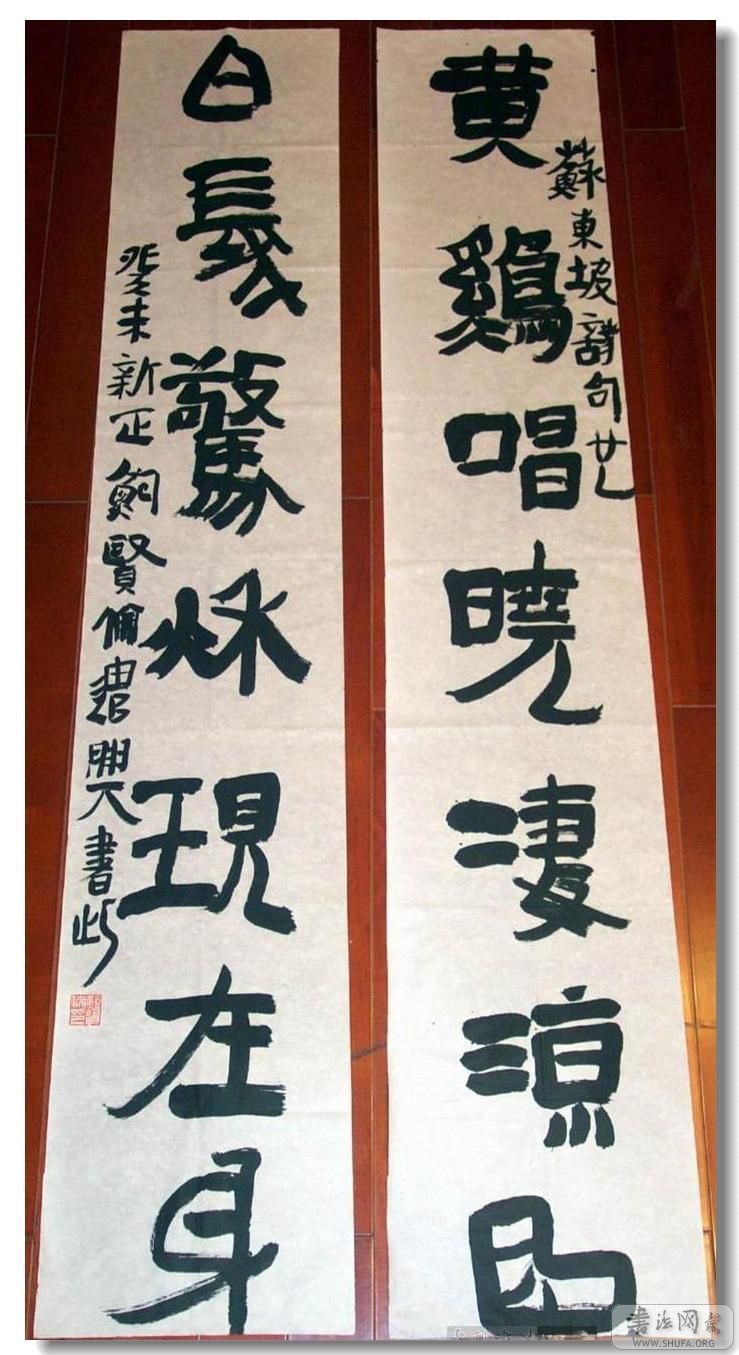 黄鷄唱曉凄涼曲
蘇東坡詩句也
白髮驚秌現在身
癸未新正鮑賢倫書此
書法网
WWW.SHUFA.ORG